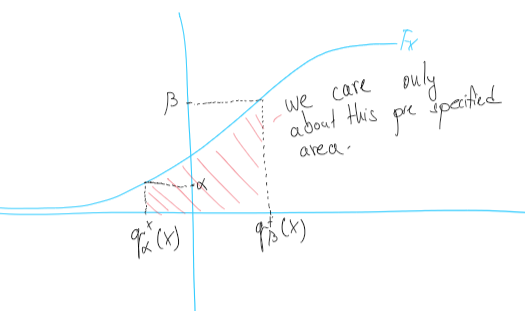 Fx
β
we care only
about this pre specified
area.
α
q⁺α(X)
q⁺β(X)